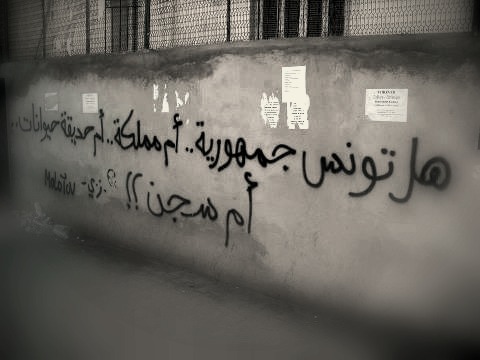 هل تونس جمهورية.. أم مملكة.. أم حديقة حيوانات..
أم سجن !!
زي- MOLOTOV